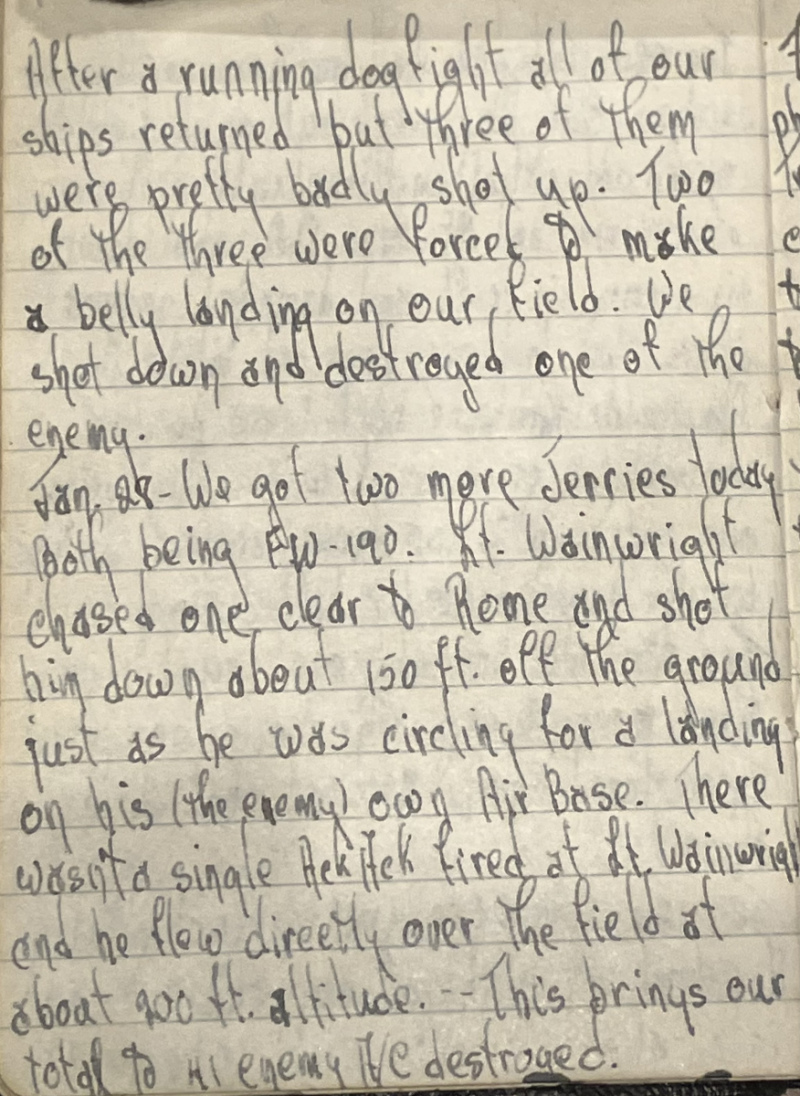 After a running dogfight all of our
ships returned but three of them
were pretty badly shot up. Two
of the three were forced to make
a belly landing on our field. We
shot down and destroyed one of the
enemy.
Jan. 28 - We got two more Jerries today
Both being FW-190. Lt. Wainwright
chased one clear to Rome and shot
him down about 150 ft. off the ground
just as he was circling for a landing
on his (the enemy) own Air Base. There
wasn't a single Ack Ack fired at Lt. Wainwrigh
and he flew directly over the field at
about 200 ft. altitude. -- This brings our
total to 41 enemy A/C destroyed.